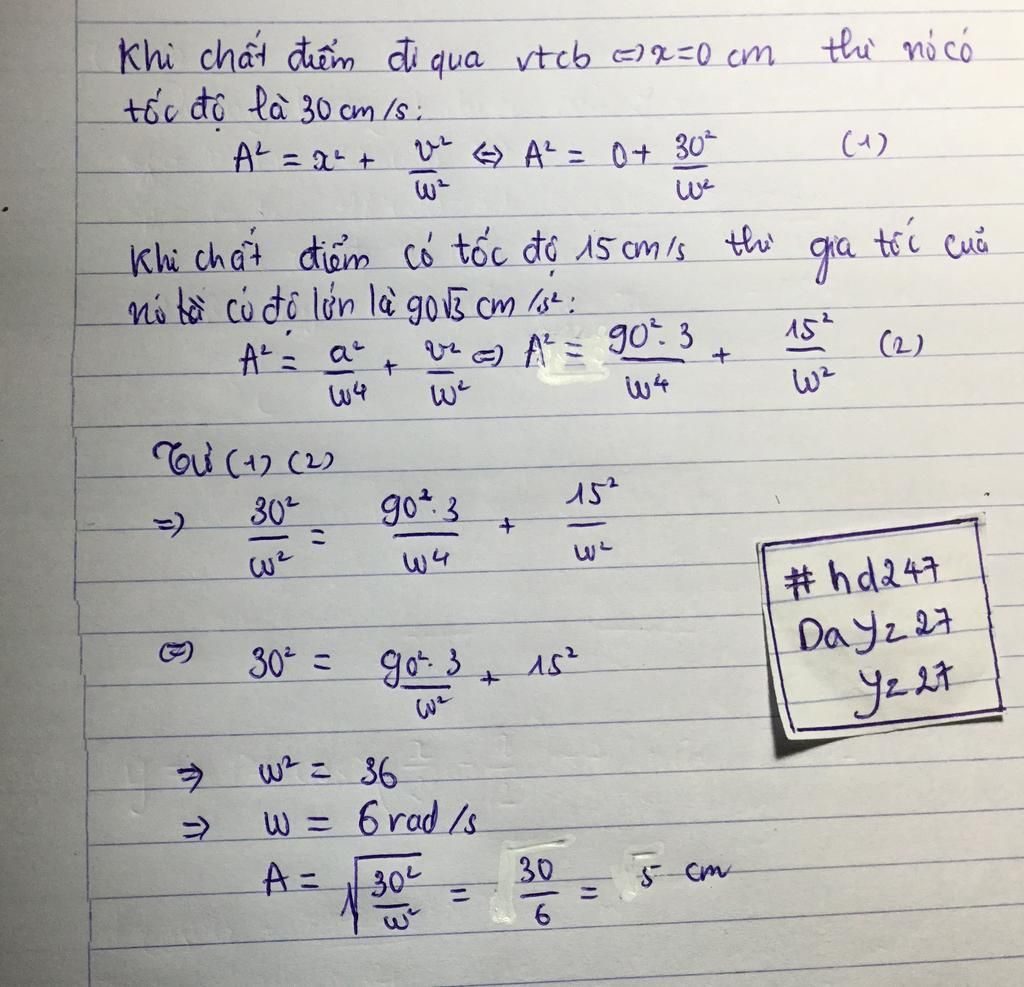 Khi chất điểm đi qua vtcb <=> x=0 cm thì nó có
tốc độ là 30 cm/s:
A² = x² + v²/w² <=> A² = 0 + 30²/w² (1)
Khi chất điểm có tốc độ 15 cm/s thì gia tốc của
nó là có độ lớn là 90√3 cm/s²:
A² = a²/w4 + v²/w² <=> A² = 90².3/w4 + 15²/w² (2)
Từ (1) (2)
=> 30²/w² = 90².3/w4 + 15²/w²
<=> 30² = 90².3/w² + 15²
=> w² = 36
=> w = 6 rad/s
A = √(30²/w²) = 30/6 = 5 cm
#hd247
Dayz27
yz27